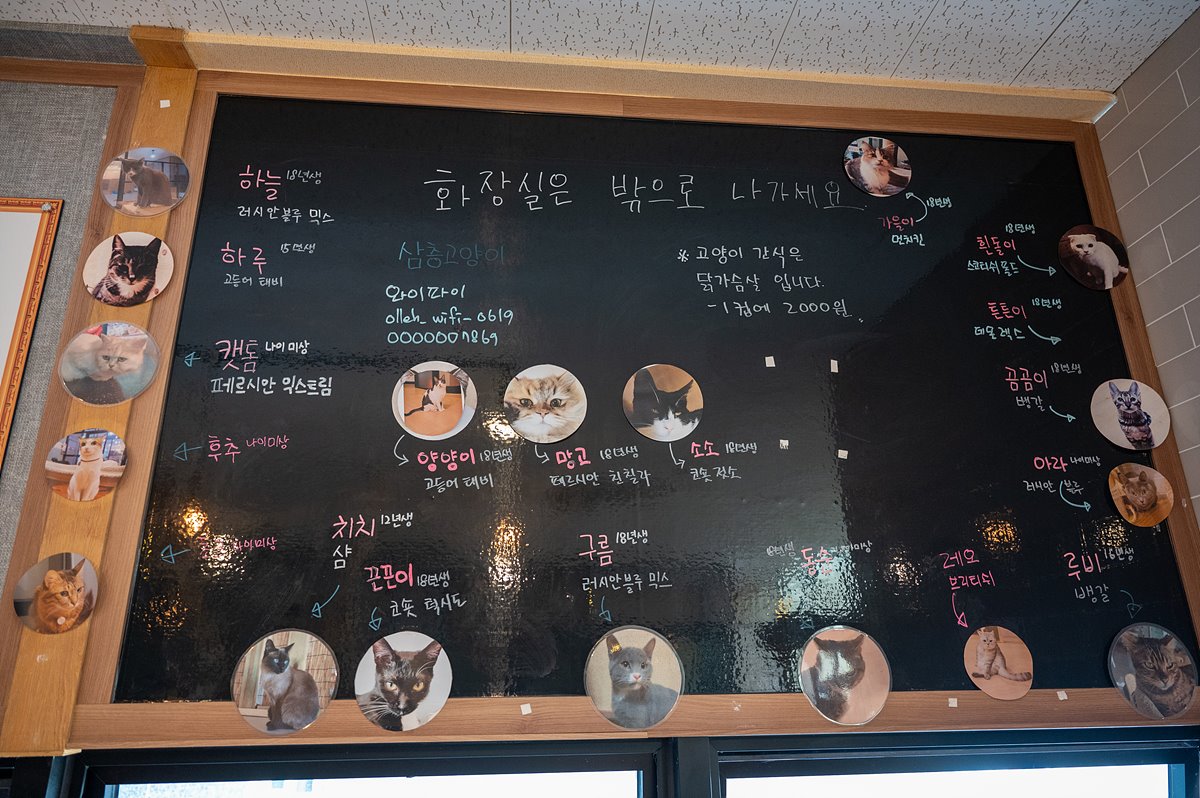 화장실은 밖으로 나가세요
하늘 18년생
러시안블루 믹스
하루 15년생
고등어 태비
캣톰 나이미상
페르시안 익스트림
후추 나이미상
나이미상
삼층고양이
와이파이
olleh_wifi_0619
0000007869
※ 고양이 간식은
닭가슴살 입니다.
-1컵에 2000원
가을이 18년생
먼치킨
흰돌이 18년생
스코티쉬폴드
튼튼이 18년생
데몬렉스
꼼꼼이 18년생
뱅갈
아라 나이미상
러시안 블루
양양이 18년생
고등어 태비
망고 18년생
페르시안 친칠라
소소 18년생
코숏 젖소
치치 12년생
샴
끈끈이 18년생
코숏 턱시도
구름 18년생
러시안블루 믹스
18년생
레오
브리티쉬
루비 16년생
뱅갈